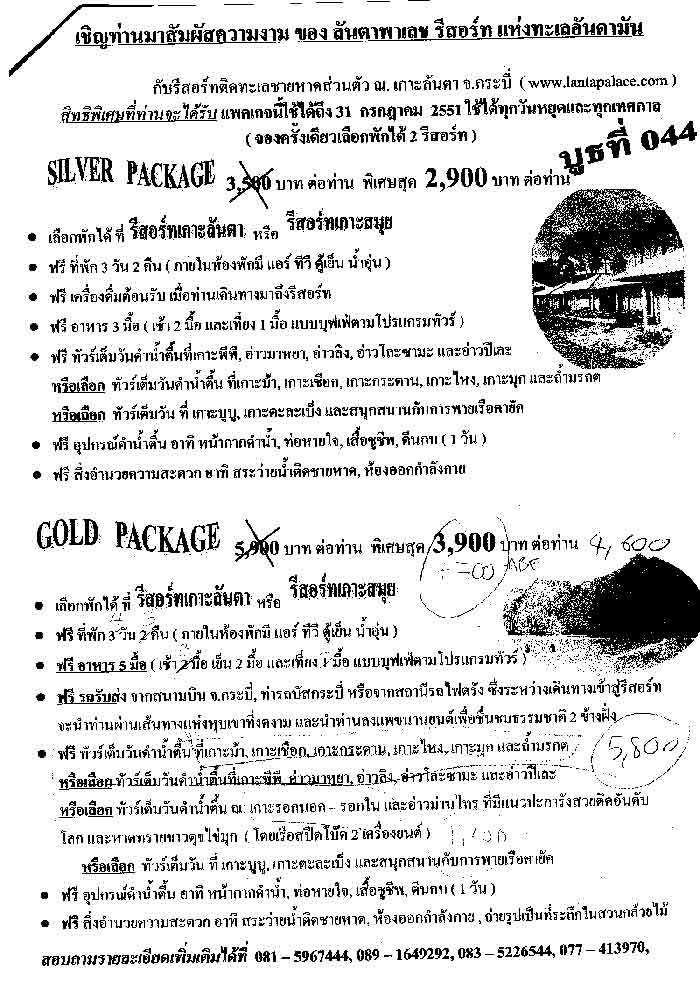 เชิญท่านมาสัมผัสความงาม ของ ลันตาพาเลซ รีสอร์ท แห่งทะเลอันดามัน
กับรีสอร์ทติดทะเลชายหาดส่วนตัว ณ. เกาะลันตา จ.กระบี่ ( www.lantapalace.com )
สิทธิพิเศษที่ท่านจะได้รับ แพคเกจนี้ใช้ได้ถึง 31 กรกฎาคม 2551 ใช้ได้ทุกวันหยุดและทุกเทศกาล
( จองครั้งเดียวเลือกพักได้ 2 รีสอร์ท )
บูธที่ 044
SILVER PACKAGE 3,500 บาท ต่อท่าน พิเศษสุด 2,900 บาท ต่อท่าน
• เลือกพักได้ ที่ รีสอร์ทเกาะลันตา หรือ รีสอร์ทเกาะสมุย
• ฟรี ที่พัก 3 วัน 2 คืน ( ภายในห้องพักมี แอร์ ทีวี ตู้เย็น น้ำอุ่น )
• ฟรี เครื่องดื่มต้อนรับ เมื่อท่านเดินทางมาถึงรีสอร์ท
• ฟรี อาหาร 3 มื้อ ( เช้า 2 มื้อ และเที่ยง 1 มื้อ แบบบุฟเฟ่ต์ตามโปรแกรมทัวร์ )
• ฟรี ทัวร์เต็มวันดำน้ำตื้นที่เกาะพีพี, อ่าวมาหยา, อ่าวลิง, อ่าวโละซามะ และอ่าวปิเละ
หรือเลือก ทัวร์เต็มวันดำน้ำตื้น ที่เกาะม้า, เกาะเชือก, เกาะกระดาน, เกาะไหง, เกาะมุก และถ้ำมรกต
หรือเลือก ทัวร์เต็มวัน ที่ เกาะบูบู, เกาะตะละเบ็ง และสนุกสนานกับการพายเรือคายัค
• ฟรี อุปกรณ์ดำน้ำตื้น อาทิ หน้ากากดำน้ำ, ท่อหายใจ, เสื้อชูชีพ, ตีนกบ ( 1 วัน )
• ฟรี สิ่งอำนวยความสะดวก อาทิ สระว่ายน้ำติดชายหาด, ห้องออกกำลังกาย
GOLD PACKAGE 5,900 บาท ต่อท่าน พิเศษสุด 3,900 บาท ต่อท่าน 4,600
• เลือกพักได้ ที่ รีสอร์ทเกาะลันตา หรือ รีสอร์ทเกาะสมุย
• ฟรี ที่พัก 3 วัน 2 คืน ( ภายในห้องพักมี แอร์ ทีวี ตู้เย็น น้ำอุ่น )
• ฟรี อาหาร 5 มื้อ ( เช้า 2 มื้อ เย็น 2 มื้อ และเที่ยง 1 มื้อ แบบบุฟเฟ่ต์ตามโปรแกรมทัวร์ )
• ฟรี รถรับส่ง จากสนามบิน จ.กระบี่, ท่ารถบัสกระบี่ หรือจากสถานีรถไฟตรัง ซึ่งระหว่างเดินทางเข้าสู่รีสอร์ท
จะนำท่านผ่านเส้นทางแห่งหุบเขาที่งดงาม และนำท่านลงแพขนานยนต์เพื่อชื่นชมธรรมชาติ 2 ข้างฝั่ง
• ฟรี ทัวร์เต็มวันดำน้ำตื้น ที่เกาะม้า, เกาะเชือก, เกาะกระดาน, เกาะไหง, เกาะมุก และถ้ำมรกต
5,800
หรือเลือก ทัวร์เต็มวันดำน้ำตื้นที่เกาะพีพี, อ่าวมาหยา, อ่าวลิง, อ่าวโละซามะ และอ่าวปิเละ
หรือเลือก ทัวร์เต็มวันดำน้ำตื้น ณ. เกาะรอกนอก – รอกใน และอ่าวม่านไทร ที่มีแนวปะการังสวยติดอันดับ
โลก และหาดทรายขาวดุจไข่มุก ( โดยเรือสปีดโบ๊ต 2 เครื่องยนต์ )
หรือเลือก ทัวร์เต็มวัน ที่ เกาะบูบู, เกาะตะละเบ็ง และสนุกสนานกับการพายเรือคายัค
• ฟรี อุปกรณ์ดำน้ำตื้น อาทิ หน้ากากดำน้ำ, ท่อหายใจ, เสื้อชูชีพ, ตีนกบ ( 1 วัน )
• ฟรี สิ่งอำนวยความสะดวก อาทิ สระว่ายน้ำติดชายหาด, ห้องออกกำลังกาย , ถ่ายรูปเป็นที่ระลึกในสวนกล้วยไม้
สอบถามรายละเอียดเพิ่มเติมได้ที่ 081 – 5967444, 089 – 1649292, 083 – 5226544, 077 – 413970,